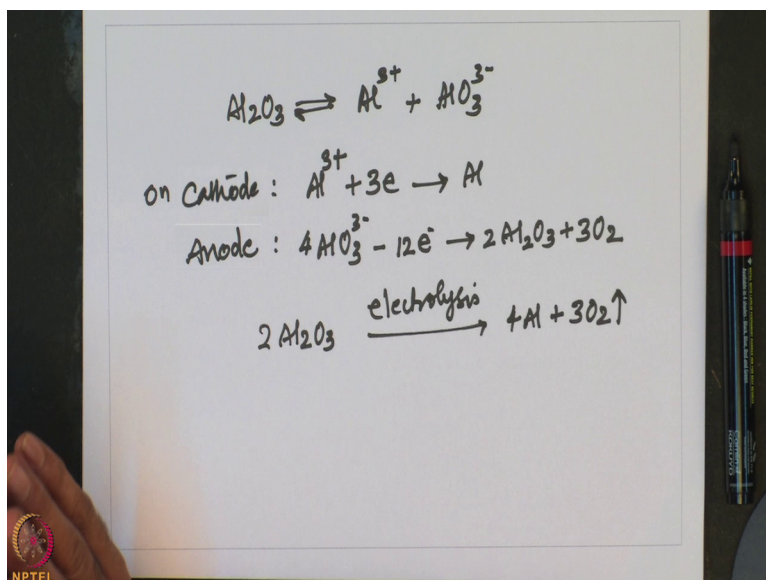 Al2O3 ⇌ Al^3+ + AlO3^3-
On Cathode : Al^3+ + 3e → Al
Anode : 4AlO3^3- - 12e^- → 2Al2O3 + 3O2
2Al2O3 electrolysis → 4Al + 3O2↑
NPTEL